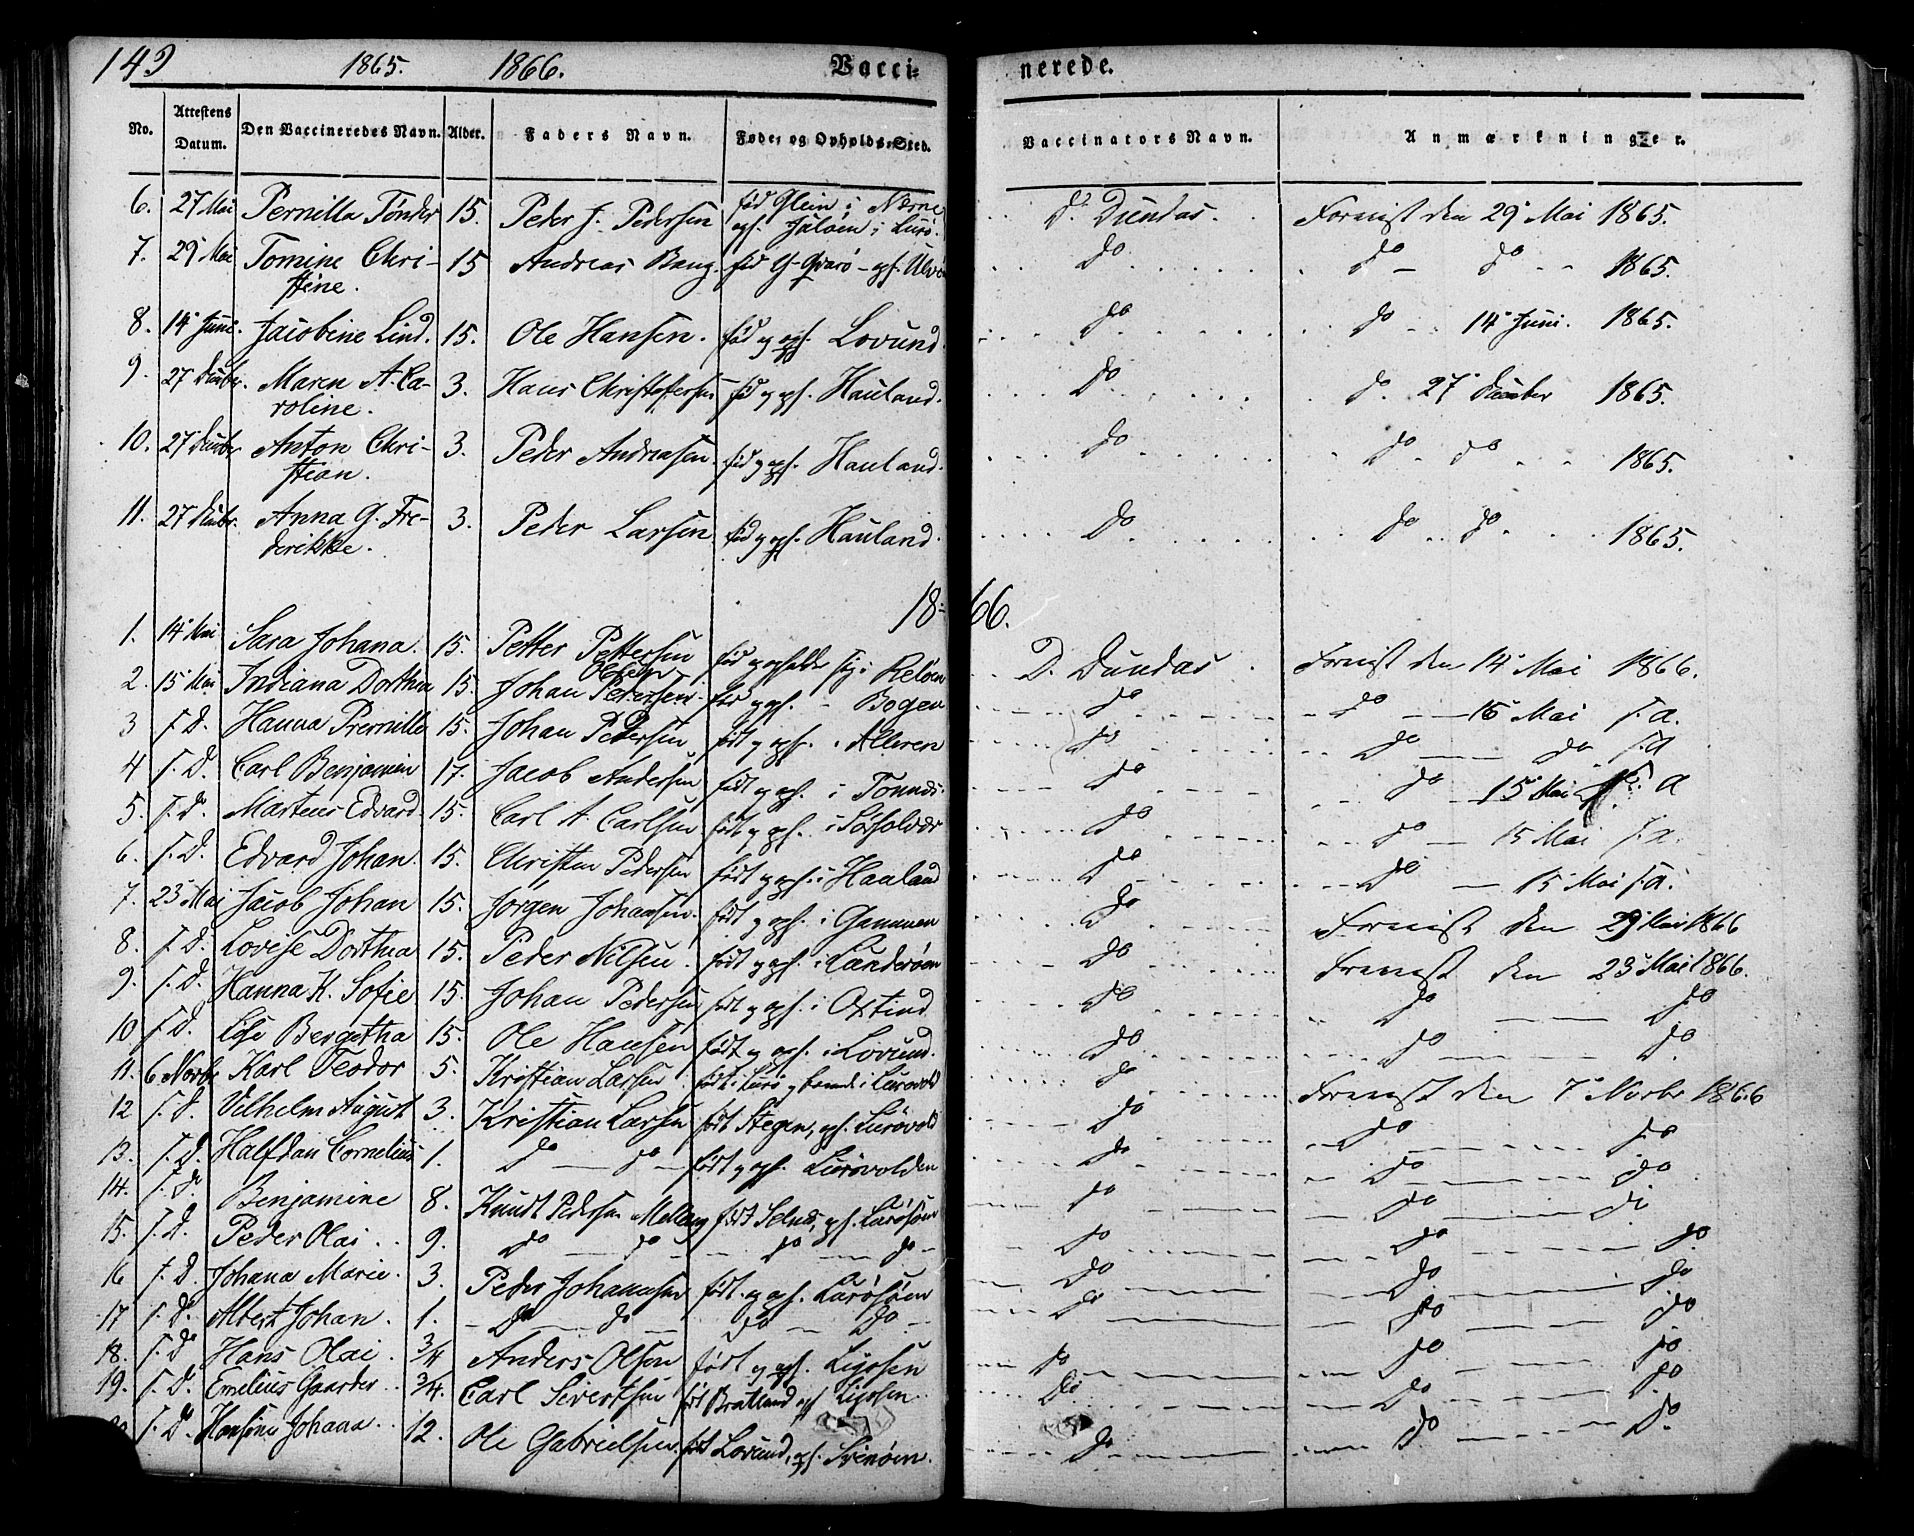 149 1865. 1866. Vacci= nerede.
No. Attestens Datum. Den Vaccineredes Navn. Alder. Faders Navn. Føde- og Opholds-Sted. Vaccinators Navn. Anmærkninger.
6. 27 Mai Pernilla Tönder 15. Peder J. Pedersen fød Glein i Nesne oph. i Lurö. D. Dundas. Forevist den 29 Mai 1865.
7. 29 Mai Tomine Chri- 15 Andreas Bang. fød oph. do do do 1865.
stine.
8. 14 Juni. Jacobine Lind. 15. Ole Hansen. fød og oph. Lovund. do do 14 Juni. 1865.
9. 27 Decbr. Maren A. Ca- 3. Hans Christophersen fød og oph. Hauland. do do. 27 December 1865.
roline.
10. 27 Decbr Anton Chri- 3. Peder Andreasen fød og oph. Hauland. do do do 1865.
stian.
11. 27 Decbr. Anna G. Fre- 3. Peder Larsen fød og oph. Hauland. do do do 1865.
derikke.
18- 66.
1. 14 Mai Sara Johana. 15. Petter Pettersen fød og opholder sig i Reløen D. Dundas Forevist den 14 Mai 1866.
2. 15 Mai Indiana Dorthea 15. Johan Pedersen Olsen fød og oph. Bogen do do 15 Mai s. a.
3 s. D. Hanna Prernille 15. Johan Pedersen født og oph. i Alleren do do do s. a
4 s. D. Carl Benjamin 17. Jacob Andersen født og oph. i Tonnes. do do 15 Mai s. a
5. s. D. Martens Edvard 15. Carl A. Carlsen født og oph. i Sørsolvær do do 15 Mai s. a.
6. s. D. Edvard Johan. 15. Christen Pedersen født og oph. i Hauland do do 15 Mai s. a.
7. 23 Mai Jacob Johan 15. Jørgen Johansen. født og oph. i Gammen do Forevist den 29 Mai 1866
8. s. D. Lovise Dorthea 15. Peder Nilsen. født og oph. i Landerøen do Forevist den 23 Mai 1866.
9. s. D. Hanna K. Sofie 15. Johan Pedersen født og oph. i Oxtind do do do
10 s. D. Else Bergetha 15. Ole Hansen født og oph. i Lovund. do do do.
11. 6 Novbr Karl Teodor 5. Kristian Larsen født i Lurö i Lurövold do Forevist den 7 Novbr 1866
12 s. D. Vilhelm August 3. Kristian Larsen født Stegen, oph. Lurövold do do do
13. s. D. Halfdan Cornelius 1. do do født og oph. Lurövolden do do do
14. s. D. Benjamine 8. Knudt Pedersen født Selnes, oph. Lurösøen do do do
15. s. D. Peder Olai. 9. do do do do do do do
16 s. D. Johana Marie. 3. Peder Johannesen født og oph. Lurösøen do do do
17 s. D. Albert Johan. 1. do do do do do do do
18. s. D Hans Olai. 3/4 Anders Olsen født og oph. Ligosen do do do
19. s. D. Emelius Gaarder. 3/4. Carl Sivertsen født Bratland oph Ligosen do do do
s. D. Hansine Johana. 12. Ole Gabrielsen født Lovund, oph. Svinøen. do do do.